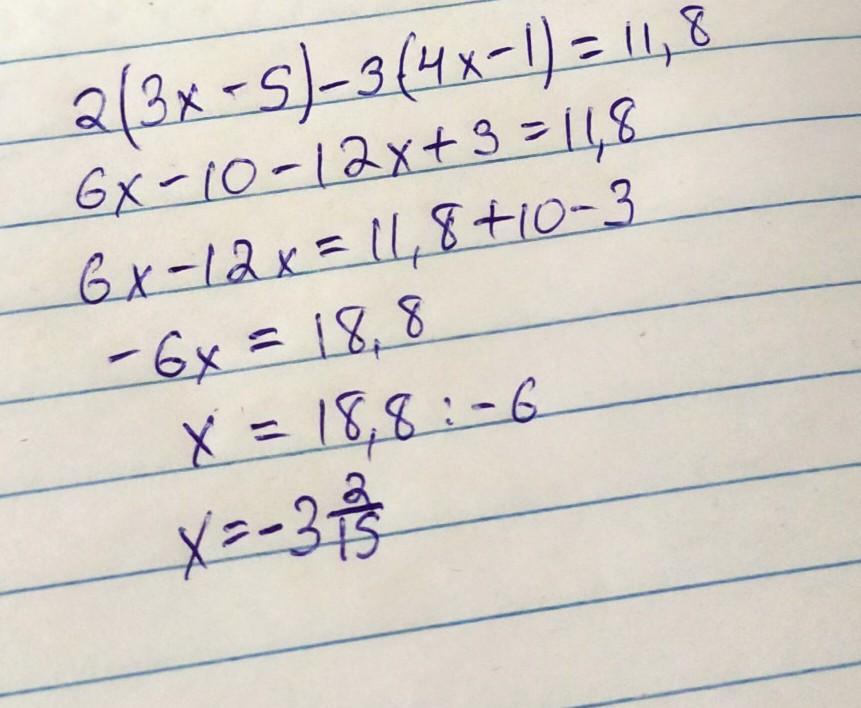 2(3x-5)-3(4x-1)=11,8
6x-10-12x+3=11,8
6x-12x=11,8+10-3
-6x=18,8
x=18,8:-6
x=-3 2/15